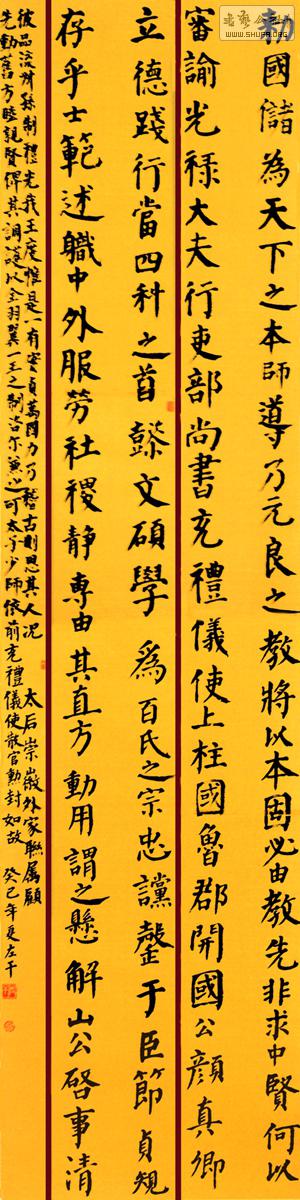 勅國儲為天下之本師導乃元良之教將以本固必由教先非求中賢何以
審諭光祿大夫行吏部尚書充禮儀使上柱國魯郡開國公顏真卿
立德踐行當四科之首懿文碩學為百氏之宗忠讜罄于臣節貞規
存乎士範述職中外服勞社稷静專由其直方動用謂之懸解山公啓事清
彼品流叔孫制禮光我王度惟是一有實貞萬國力乃稽古則思其人况太后崇徽外家聯属顧
先勳舊方睦親賢俾其調護以全羽翼一王之制咨尔兼之可太子少師依前充禮儀使散官勳封如故癸巳年夏左干
書藝公社
WWW.SHUFA.ORG